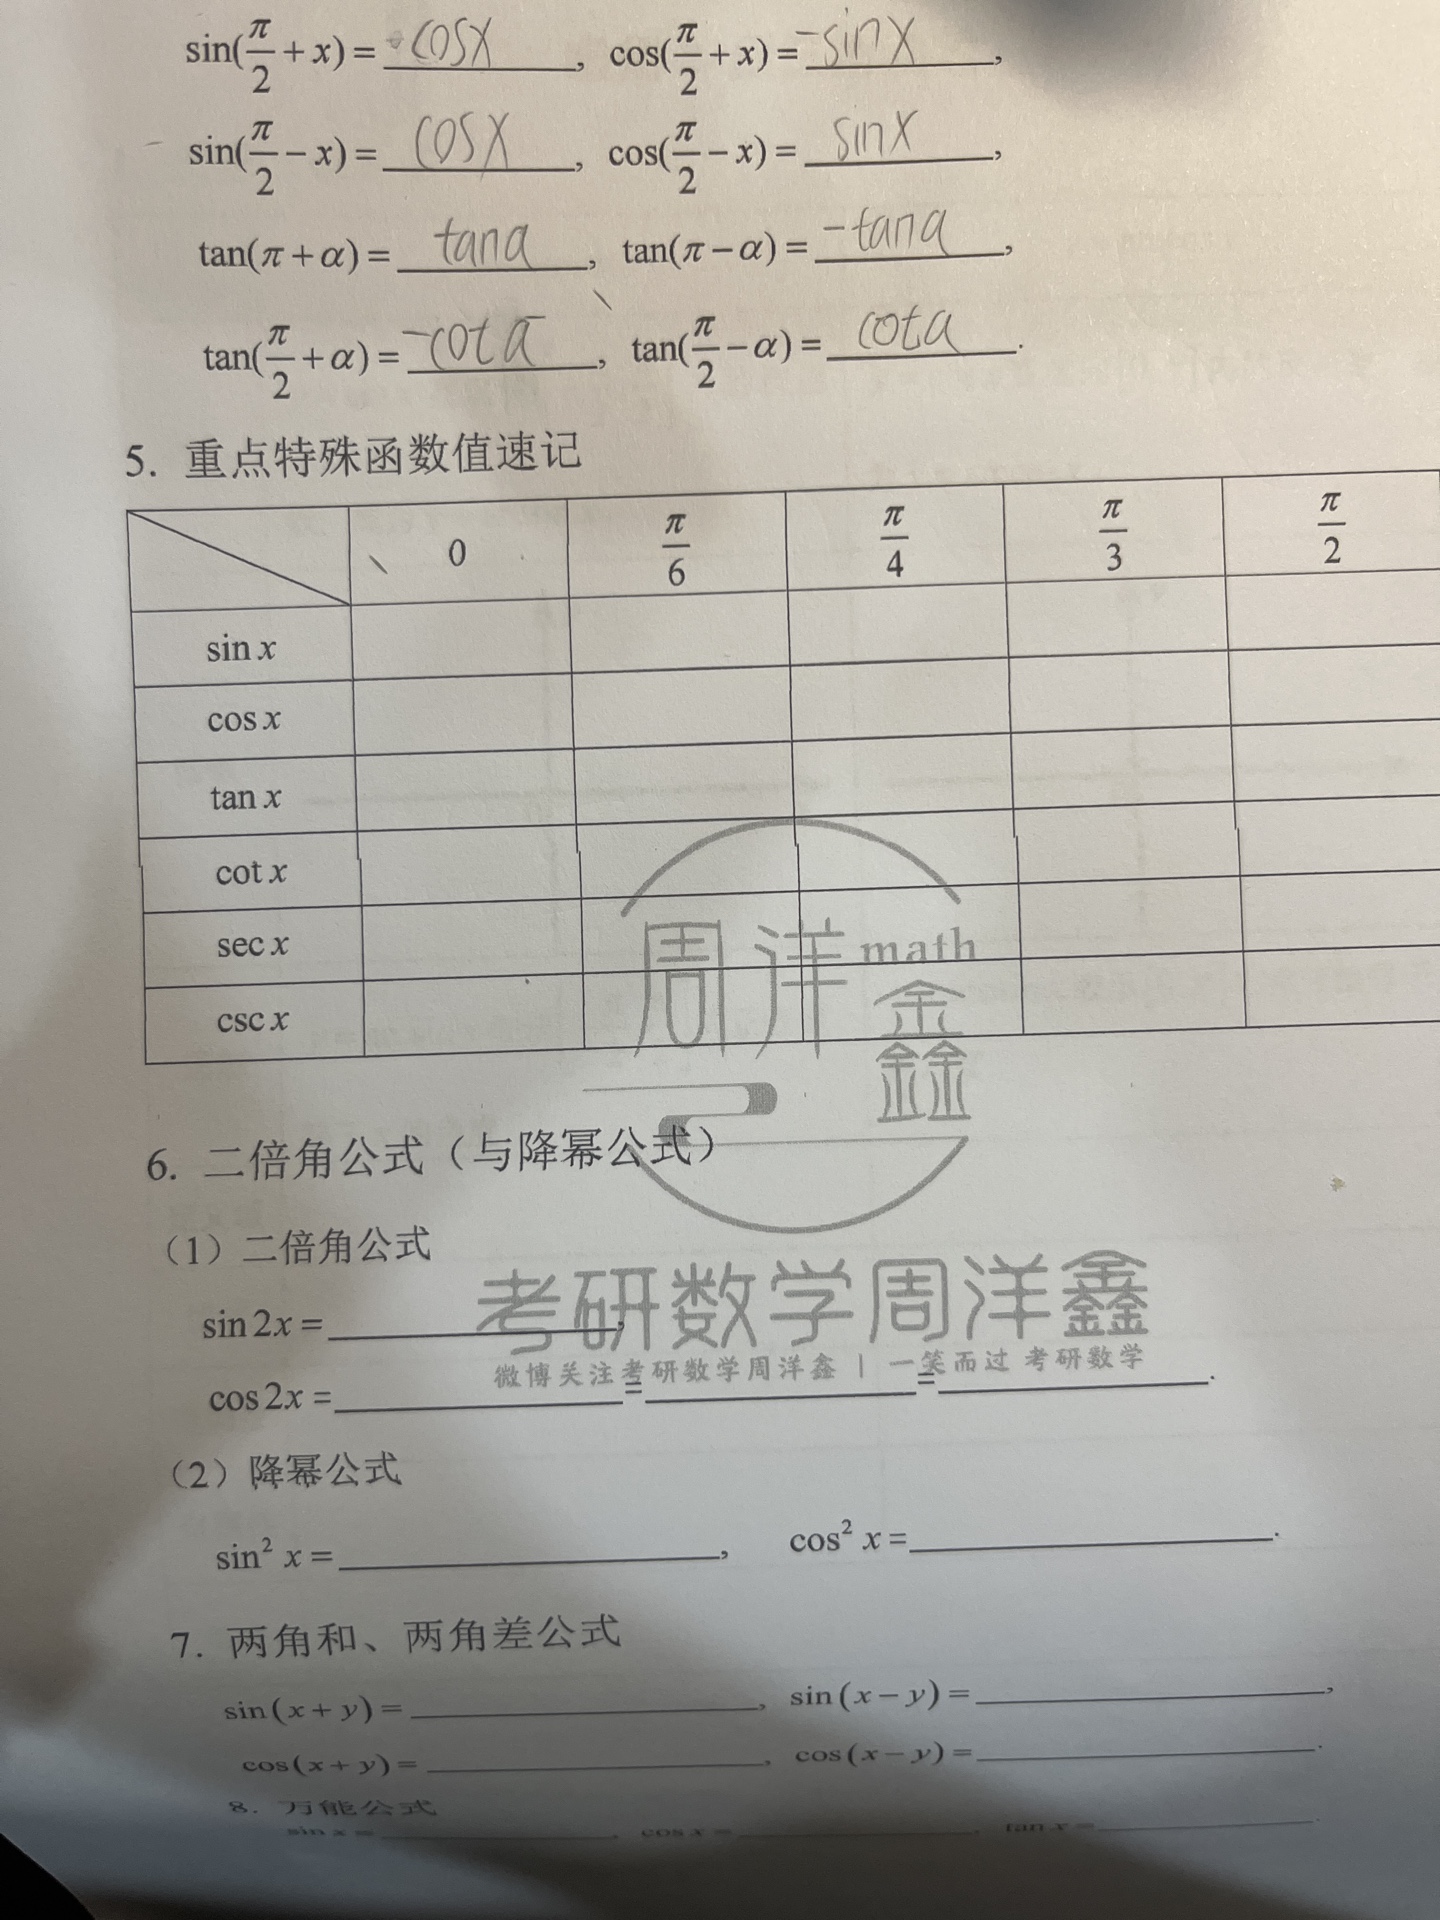 sin(π/2 + x) = cosx, cos(π/2 + x) = -sinx,
sin(π/2 − x) = cosx, cos(π/2 − x) = sinx,
tan(π + α) = tanα, tan(π − α) = -tanα,
tan(π/2 + α) = -cotα, tan(π/2 − α) = cotα.
5. 重点特殊函数值速记
0 π/6 π/4 π/3 π/2
sin x
cos x
tan x
cot x
sec x
csc x
周洋鑫 math
6. 二倍角公式（与降幂公式）
（1）二倍角公式
考研数学周洋鑫
sin 2x = ,
微博关注考研数学周洋鑫 | 一笑而过 考研数学
cos 2x = = = .
（2）降幂公式
sin² x = , cos² x = .
7. 两角和、两角差公式
sin(x + y) = , sin(x − y) = ,
cos(x + y) = , cos(x − y) = .
8. 万能公式
sin x = , cos x = , tan x = .